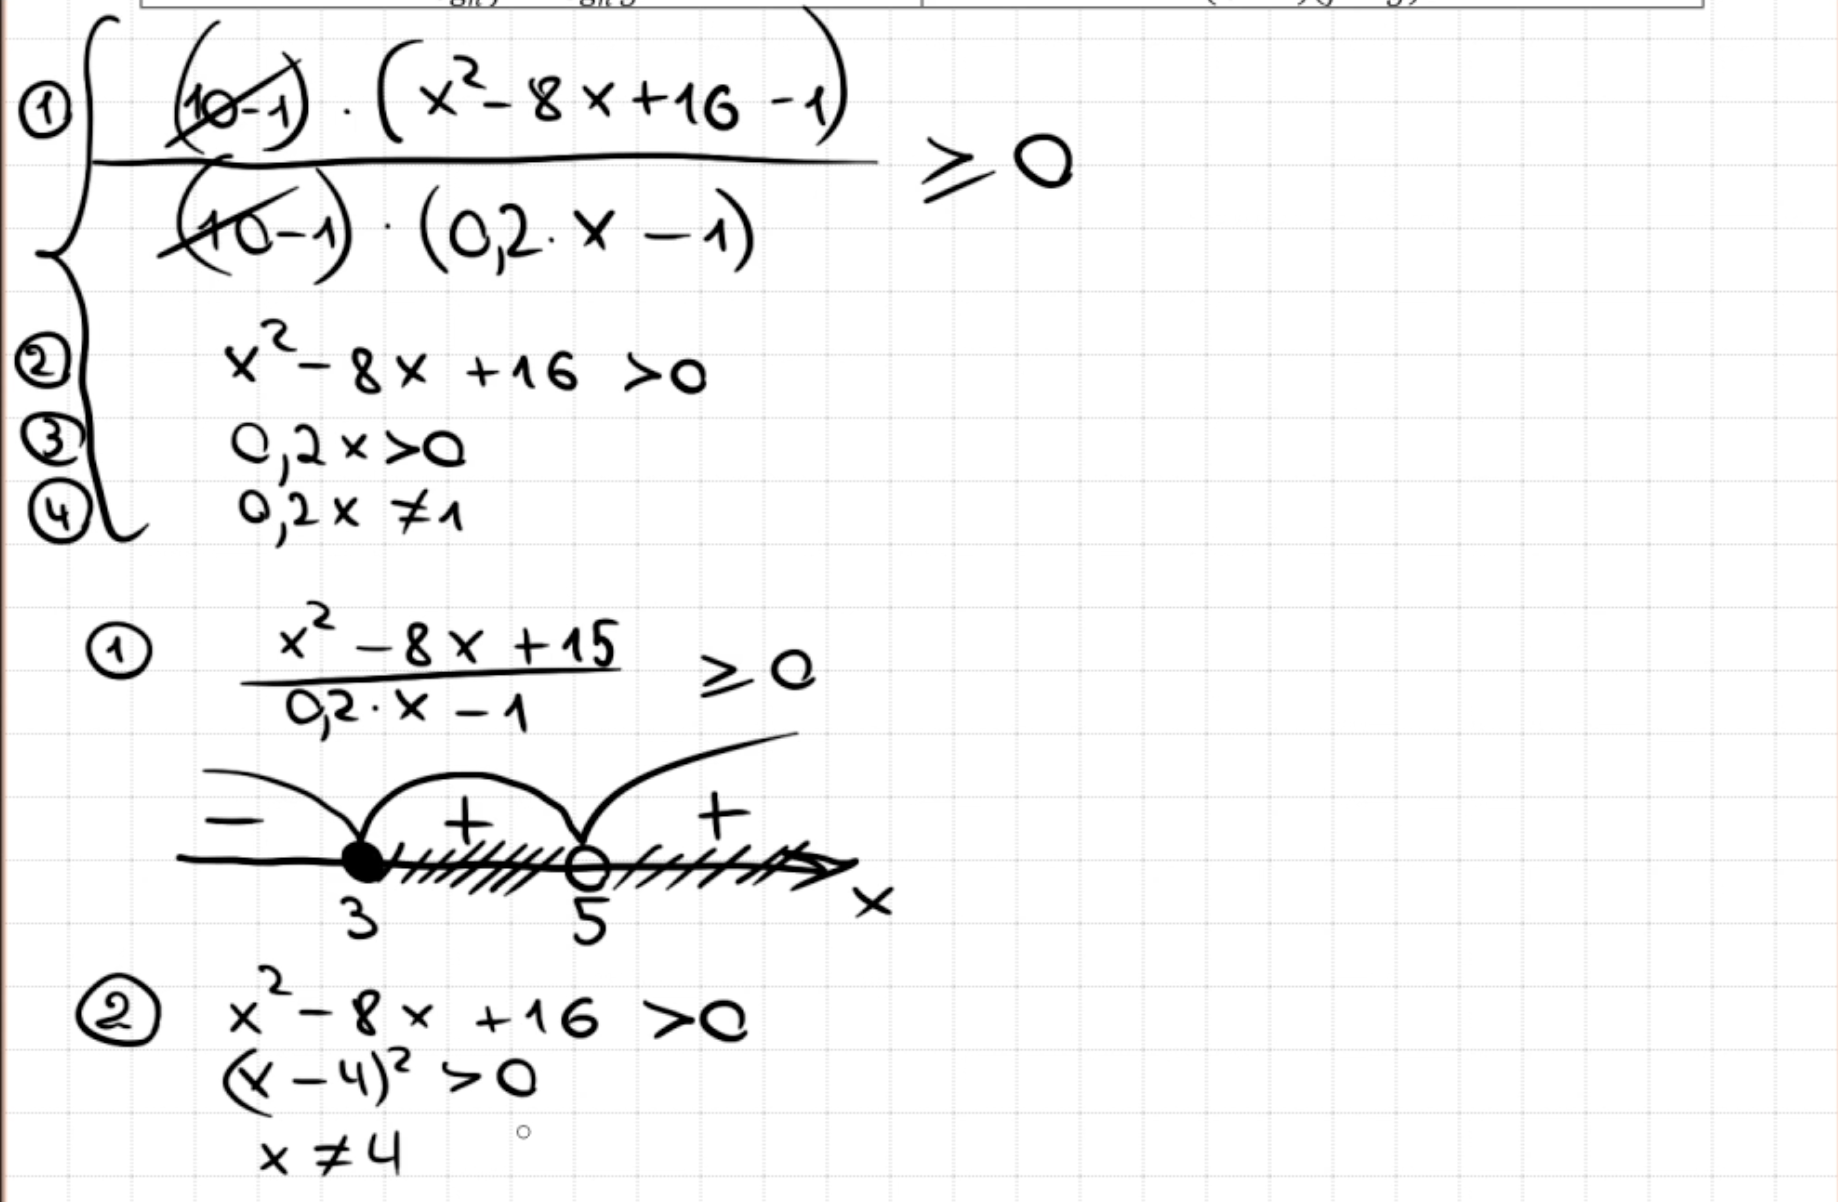 ① (10-1) · (x²-8x+16-1)
(10-1) · (0,2·x-1) ≥ 0
② x²-8x+16 >0
③ 0,2x>0
④ 0,2x ≠1
① x²-8x+15
0,2·x-1 ≥ 0
- + +
3 5 x
② x²-8x+16 >0
(x-4)² >0
x ≠ 4